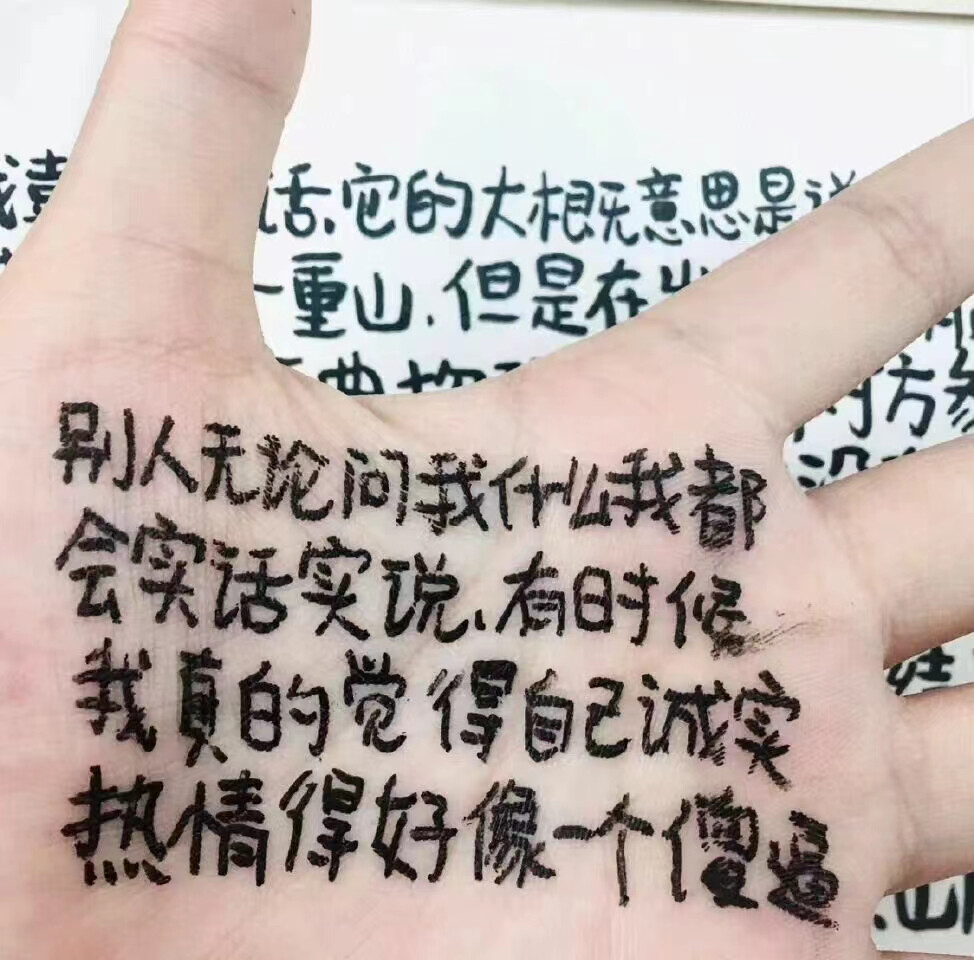 话,它的大概意思是说
一重山.但是在出
别人无论问我什么我都
会实话实说、有时候
我真的觉得自己诚实
热情得好像一个傻逼